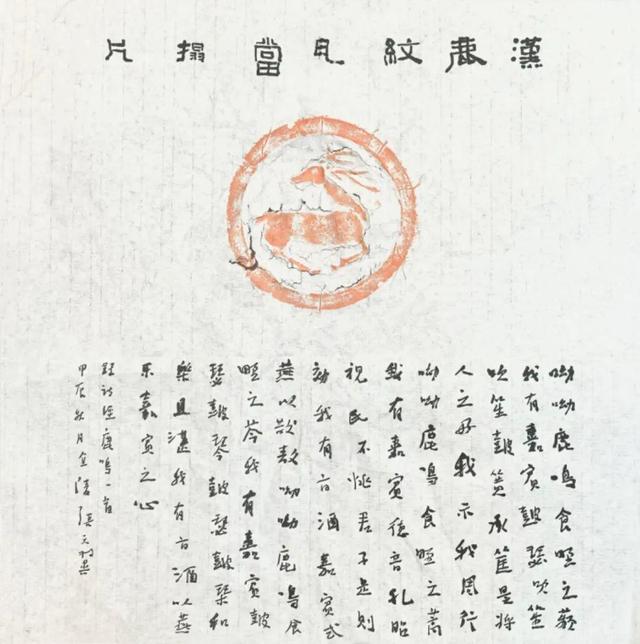 漢鹿紋瓦當搨片
呦呦鹿鳴食野之蘋
我有嘉賓鼓瑟吹笙
吹笙鼓簧承筐是將
人之好我示我周行
呦呦鹿鳴食野之蒿
我有嘉賓德音孔昭
視民不恌君子是則
効我有旨酒嘉賓式
燕以敖呦呦鹿鳴食
野之芩我有嘉賓鼓
瑟鼓琴鼓瑟鼓琴和
樂且湛我有旨酒以燕
乐嘉賓之心
録詩經鹿鳴一首
甲辰秋月金陵張